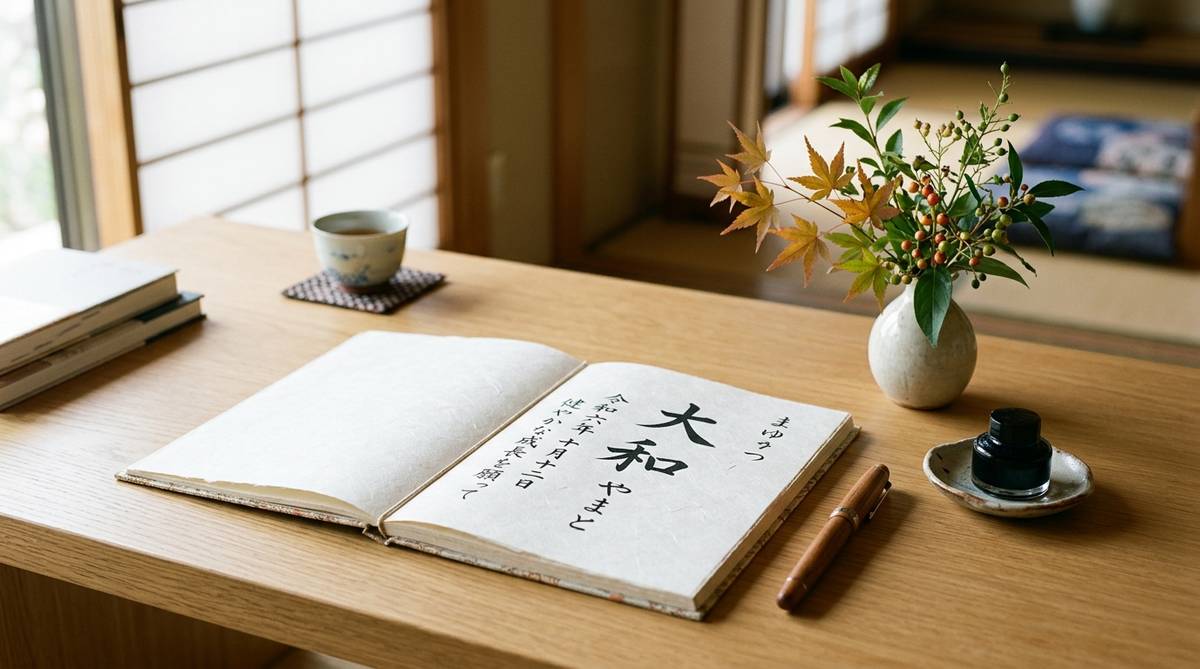 まゆみつ
大和 やまと
令和六年十月十二日
健やかな成長を願って